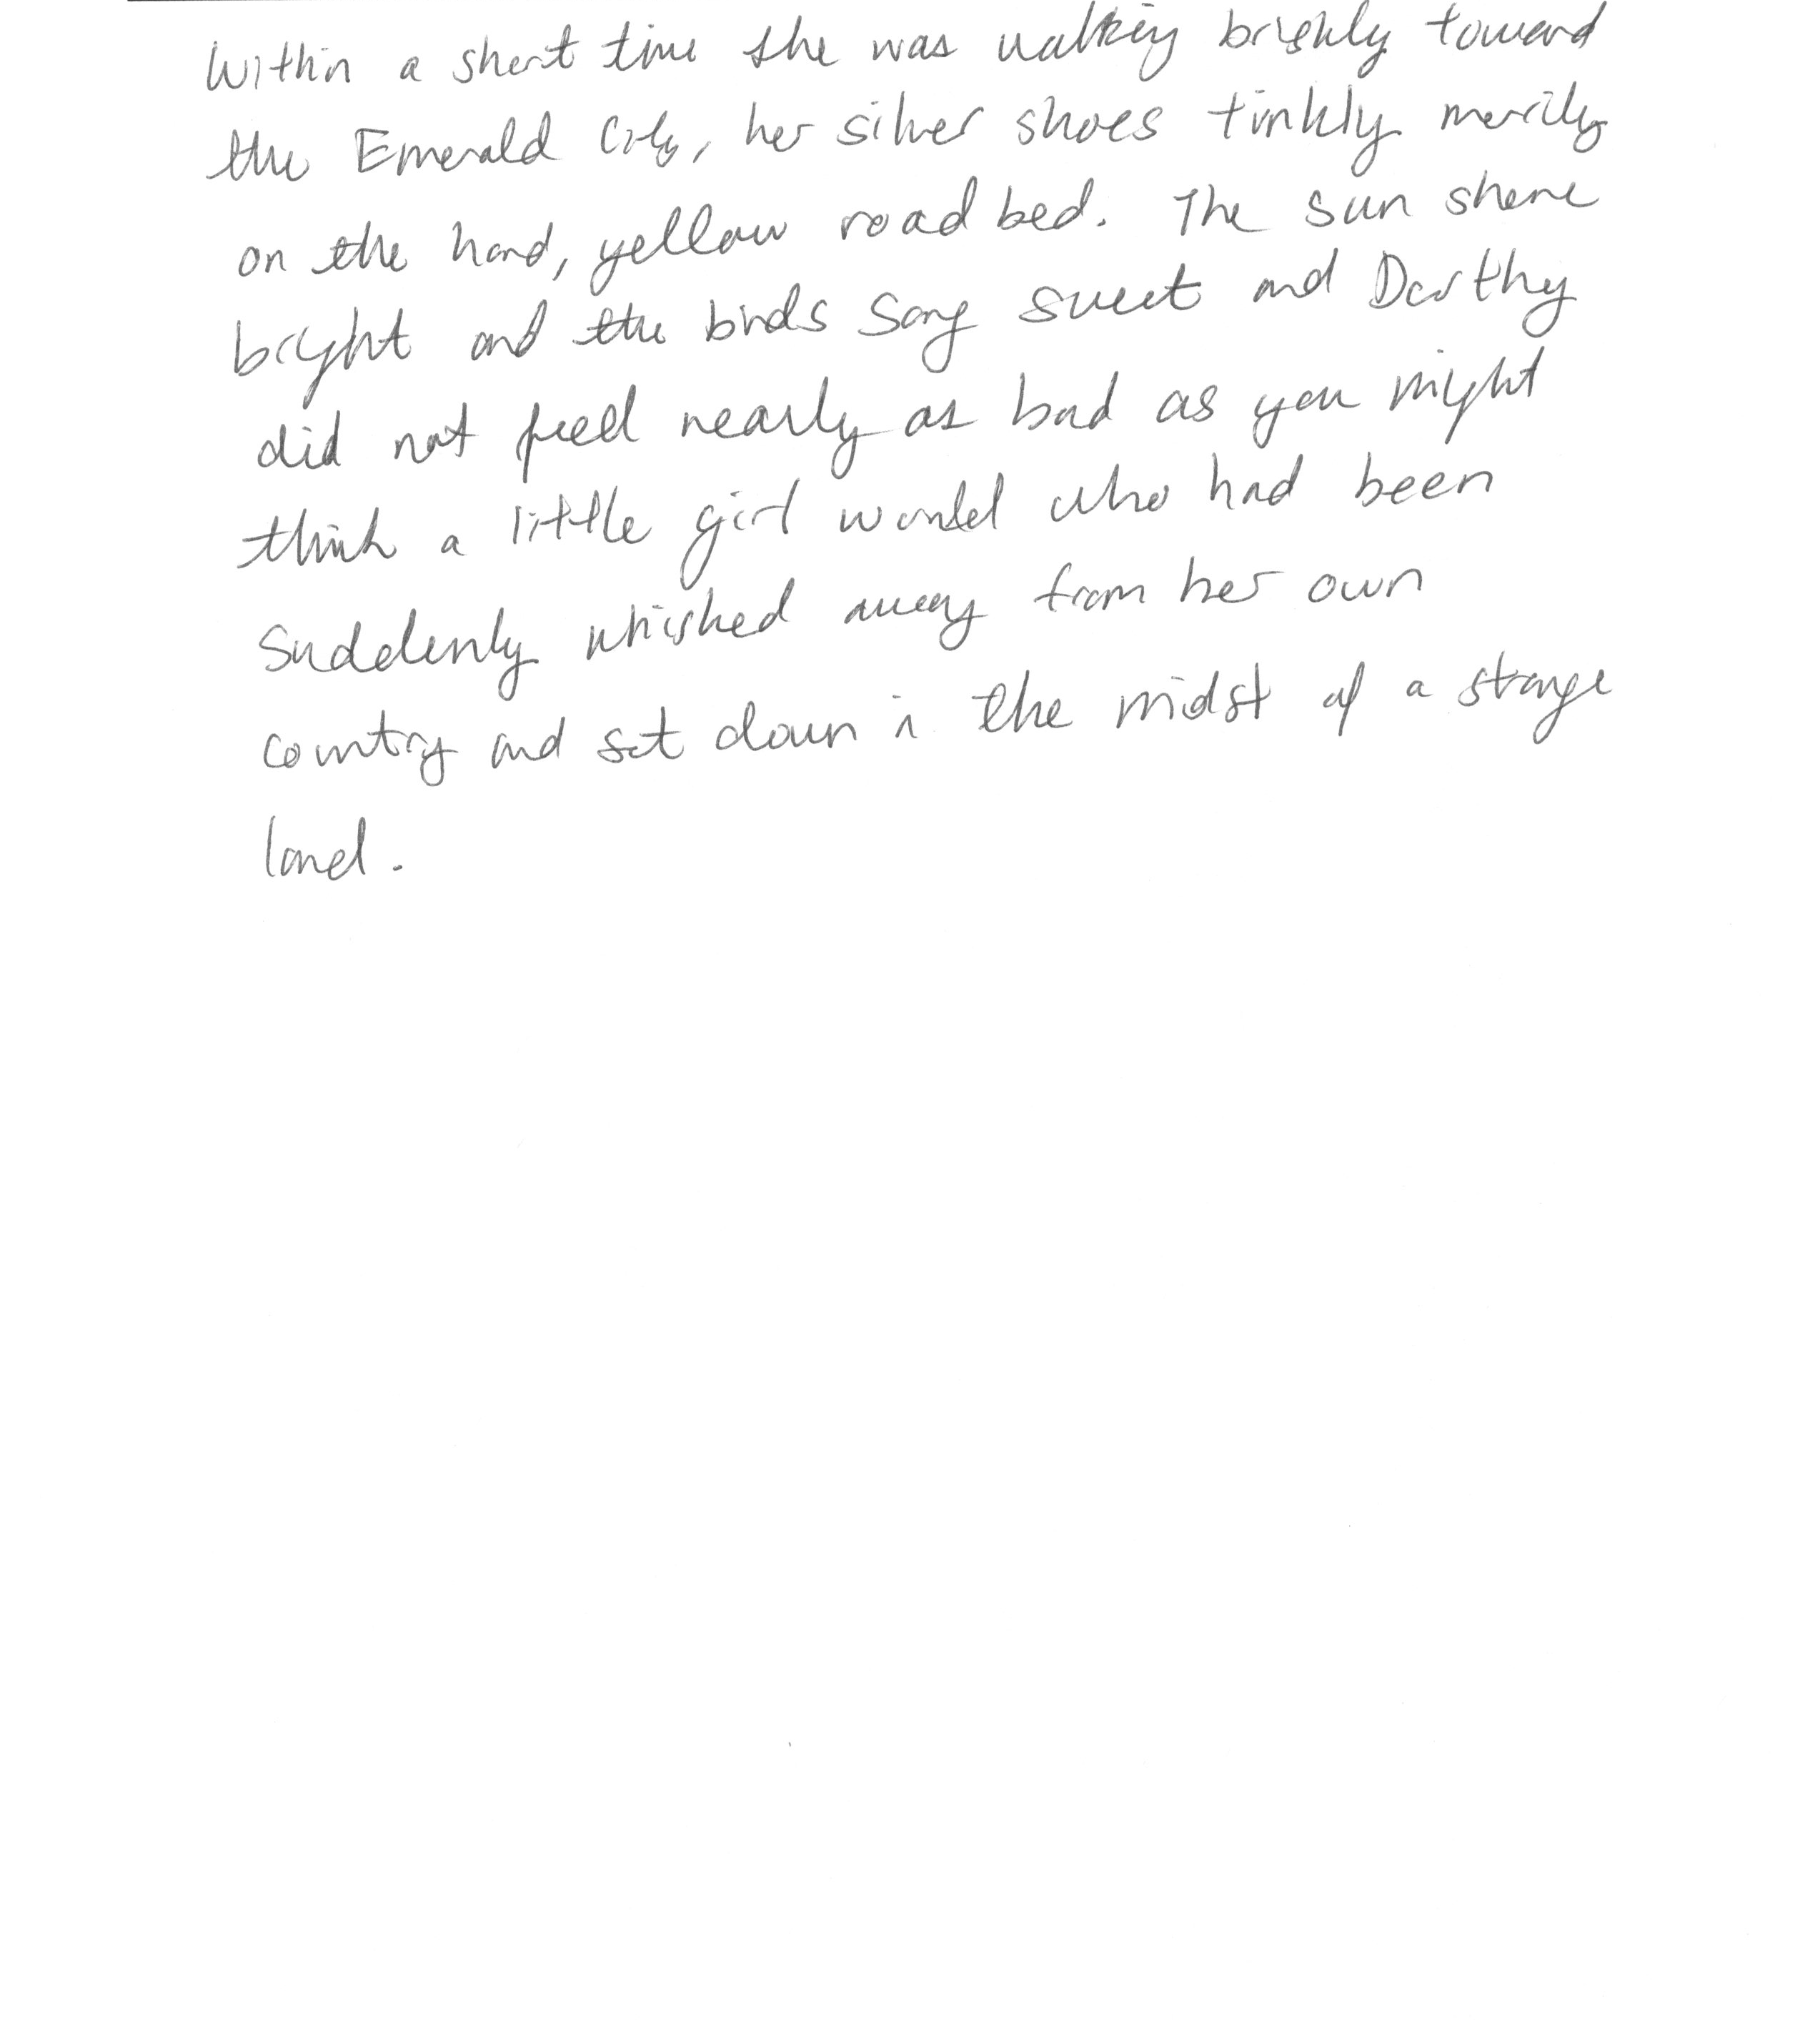 Within a short time she was walking briskly toward
the Emerald City, her silver shoes tinkling merrily
on the hard, yellow road bed. The sun shone
bright and the birds sang sweet and Dorothy
did not feel nearly as bad as you might
think a little girl would who had been
suddenly whisked away from her own
country and set down in the midst of a strange
land.